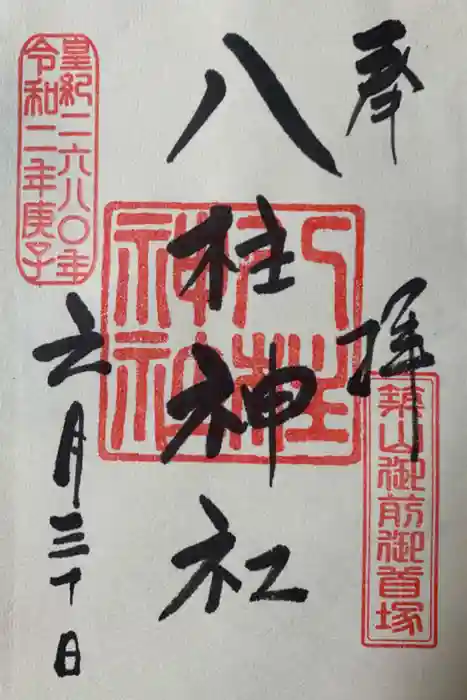 奉
拝
築山御前御首塚
八柱神社
八柱
神社
皇紀二六八〇年
令和二年庚子
六月三十日